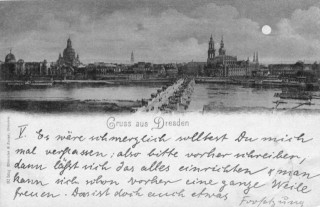 Gruss aus Dresden.
V. Es wäre schmerzlich solltest Du mich
mal verpassen; also bitte vorher schreiben,
dann läßt sich das alles einrichten & man
kann sich schon vorher eine ganze Weile
freuen. Das ist doch auch etwas
Fortsetzung